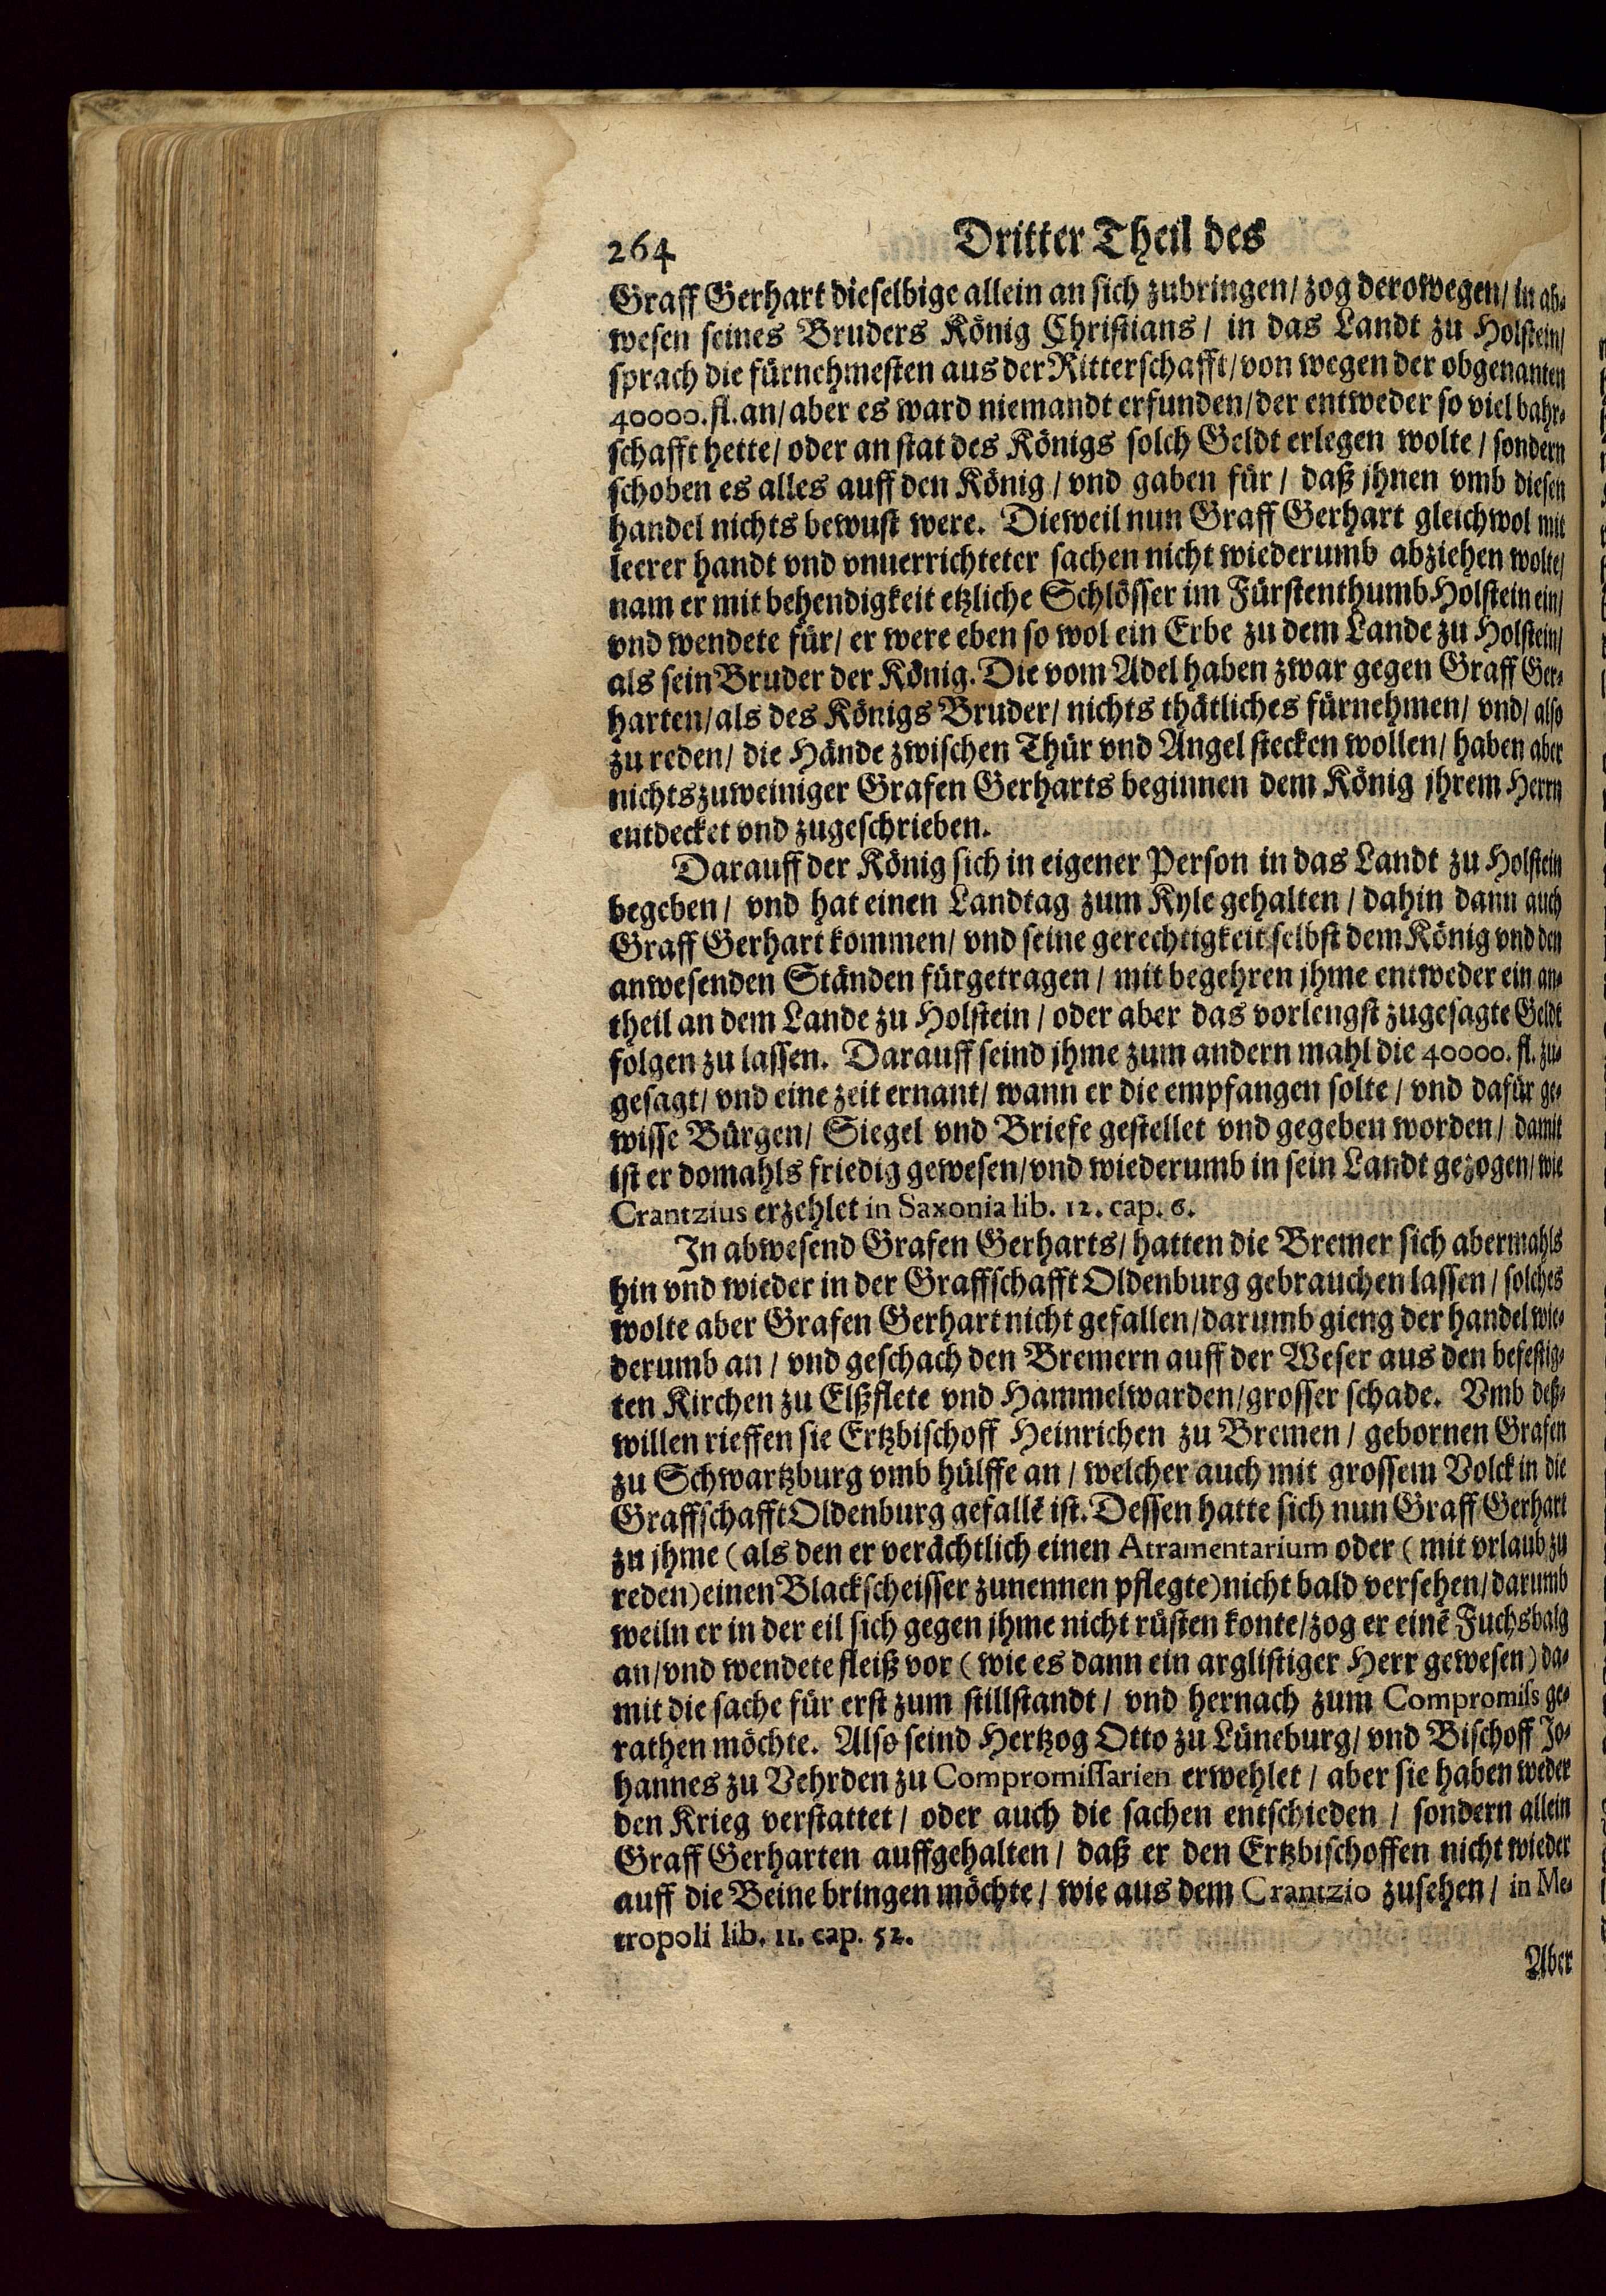 264 Dritter Theil des
Graff Gerhart dieselbige allein an sich zubringen/ zog derowegen/ in ab-
wesen seines Bruders König Christians/ in das Landt zu Holstein/
sprach die fürnehmesten aus der Ritterschafft/ von wegen der obgenanten
40000. fl. an/ aber es ward niemandt erfunden/ der entweder so viel bahr-
schafft hette/ oder an stat des Königs solch Geldt erlegen wolte/ sondern
schoben es alles auff den König/ vnd gaben für/ daß jhnen vmb diesen
handel nichts bewust were. Dieweil nun Graff Gerhart gleichwol mit
leerer handt vnd vnuerrichteter sachen nicht wiederumb abziehen wolte/
nam er mit behendigkeit etzliche Schlösser im Fürstenthumb Holstein ein/
vnd wendete für/ er were eben so wol ein Erbe zu dem Lande zu Holstein/
als sein Bruder der König. Die vom Adel haben zwar gegen Graff Ger-
harten/ als des Königs Bruder/ nichts thätliches fürnehmen/ vnd/ also
zu reden/ die Hände zwischen Thür vnd Angel stecken wollen/ haben aber
nichtszuweiniger Grafen Gerharts beginnen dem König jhrem Herrn
entdecket vnd zugeschrieben.
Darauff der König sich in eigener Person in das Landt zu Holstein
begeben/ vnd hat einen Landtag zum Kyle gehalten/ dahin dann auch
Graff Gerhart kommen/ vnd seine gerechtigkeit selbst dem König vnd den
anwesenden Ständen fürgetragen/ mit begehren jhme entweder ein an-
theil an dem Lande zu Holstein/ oder aber das vorlengst zugesagte Geldt
folgen zu lassen. Darauff seind jhme zum andern mahl die 40000. fl. zu-
gesagt/ vnd eine zeit ernant/ wann er die empfangen solte/ vnd dafür ge-
wisse Bürgen/ Siegel vnd Briefe gestellet vnd gegeben worden/ damit
ist er domahls friedig gewesen/ vnd wiederumb in sein Landt gezogen/ wie
Crantzius erzehlet in Saxonia lib. 12. cap. 6.
In abwesend Grafen Gerharts/ hatten die Bremer sich abermahls
hin vnd wieder in der Graffschafft Oldenburg gebrauchen lassen/ solches
wolte aber Grafen Gerhart nicht gefallen/ darumb gieng der handel wie-
derumb an/ vnd geschach den Bremern auff der Weser aus den befestig-
ten Kirchen zu Elßflete vnd Hammelwarden/ grosser schade. Vmb deß-
willen rieffen sie Ertzbischoff Heinrichen zu Bremen/ gebornen Grafen
zu Schwartzburg vmb hülffe an/ welcher auch mit grossem Volck in die
Graffschafft Oldenburg gefallē ist. Dessen hatte sich nun Graff Gerhart
zu jhme (als den er verächtlich einen Atramentarium oder (mit vrlaub zu
reden) einen Blackscheisser zunennen pflegte) nicht bald versehen/ darumb
weiln er in der eil sich gegen jhme nicht rüsten konte/ zog er einē Fuchsbalg
an/ vnd wendete fleiß vor (wie es dann ein arglistiger Herr gewesen) da-
mit die sache für erst zum stillstandt/ vnd hernach zum Compromiss ge-
rathen möchte. Also seind Hertzog Otto zu Lüneburg/ vnd Bischoff Jo-
hannes zu Vehrden zu Compromissarien erwehlet/ aber sie haben weder
den Krieg verstattet/ oder auch die sachen entschieden/ sondern allein
Graff Gerharten auffgehalten/ daß er den Ertzbischoffen nicht wieder
auff die Beine bringen möchte/ wie aus dem Crantzio zusehen/ in Me-
tropoli lib. 11. cap. 52.
Aber